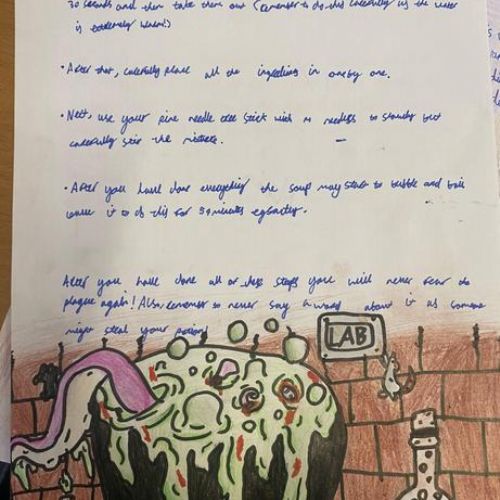 30 seconds and then take them out (remember to do this carefully as the water
is extremely warm!)
• After that, carefully place all the ingredients in one by one.
• Next, use your pine needle tree stick with no needles to slowly but
carefully stir the mixture.
• After you have done everything the soup may start to bubble and boil
leave it to do this for 54 minutes
After you have done all of steps you will never fear the
plague again! Also remember to never say a word about it as someone
might steal your potion!
LAB